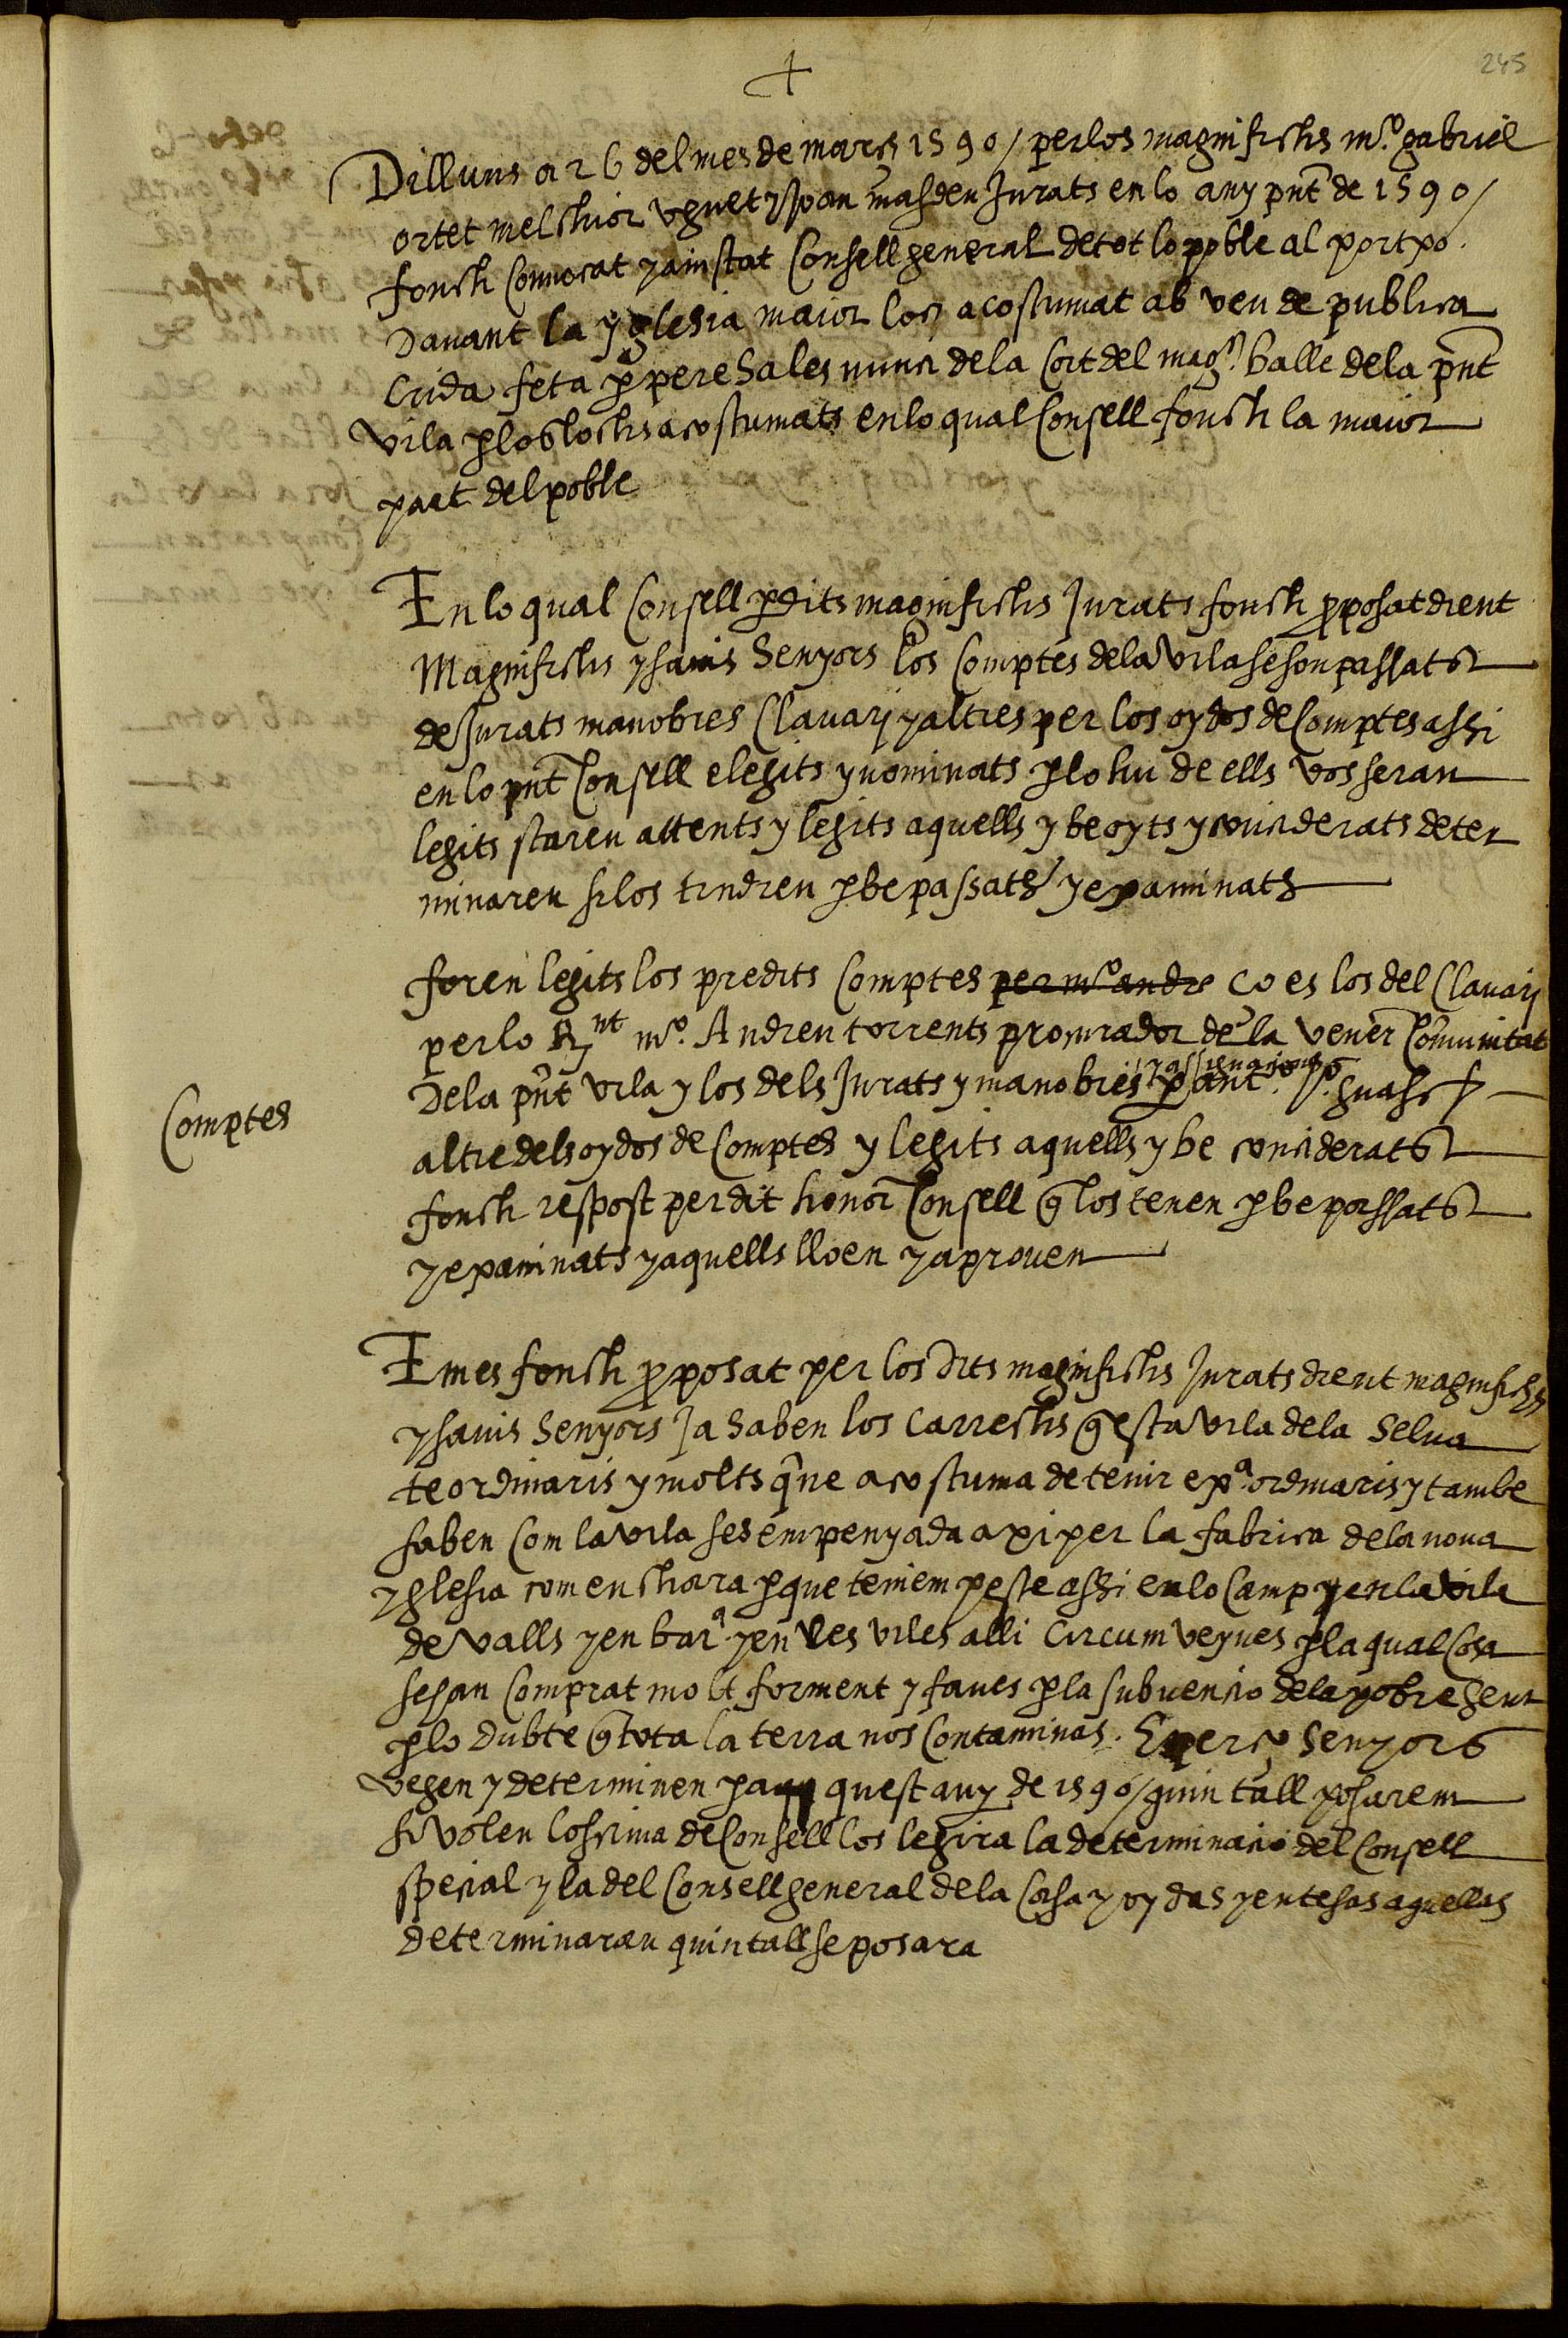 245
Dilluns a 26 del mes de mars 1590 / per los magnifichs mº. gabriel
ortet melchior uguet y Joan masdeu Jurats en lo any pnt de 1590 /
fonch Convocat y aiustat Consell general de tot lo poble al portxo
Davant la yglesia maior loch acostumat ab veu de publica
Crida feta p pere Sales nunci dela Cort del magch. balle dela pnt
vila p los lochs acostumats en lo qual Consell fonch la maior
part del poble
En lo qual Consell p dits magnifichs Jurats fonch pposat dient
Magnifichs y savis Senyors los Comptes dela vila se son passats
de Jurats manobres Clavarj y altres per los oydos de Comptes assi
en lo pnt Consell elegits y nominats p lo hu de ells vos seran
legits staren attents y legits aquells y be oyts y considerats deter
minaren si los tindren p be passats y examinats
foren legits los predits Comptes per mº andre co es los del Clavarj
per lo Rnt mº. Andreu torrents procurador de la vener Comunitat
Comptes
Dela pnt vila y los dels Jurats y manobres p ant guasch
altre dels oydos de Comptes y legits aquells y be considerats
fonch respost per dit honor Consell q los tenen p be passats
y examinats y aquells lloen y aproven
E mes fonch pposat per los dits magnifichs Jurats dient magnifichs
y savis Senyors Ja Saben los Carrechs q esta vila dela Selva
te ordinaris y molts q ne acostuma de tenir exª. ordinaris y tambe
saben Com la vila ses empenyada axi per la fabrica dela nova
yglesia com enchara p que teniem peste assi en lo Camp y en la vila
de valls y en barª. y en les viles alli Circumveynes p la qual Cosa
se han Comprat molt forment y faves p la subvencio dela pobre gent
p lo dubte q tota la terra nos Contaminas. E per ço Senyors
vegen y determinen p a quest any de 1590 / quin tall posarem
si volen los scriva de Consell los legira la determinacio del Consell
special y la del Consell general dela Casa y oydas y entesas aquellas
determinaran quin tall se posara